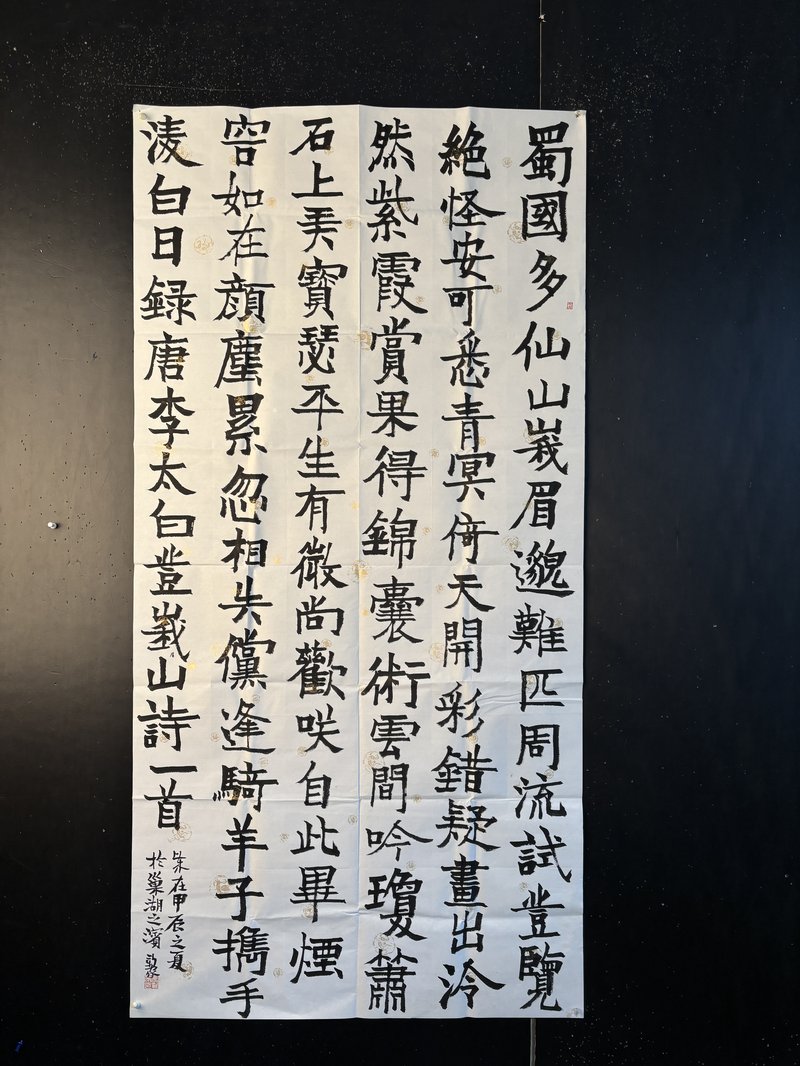 蜀國多仙山峩眉邈難匹周流試登覽
絶怪安可悉青冥倚天開彩錯疑畫出泠
然紫霞賞果得錦囊術雲間吟瓊簫
石上弄寶瑟平生有微尚歡咲自此畢煙
容如在顔塵累忽相失儻逢騎羊子擕手
凌白日録唐李太白登峩山詩一首
歲在甲辰之夏
於巢湖之濱